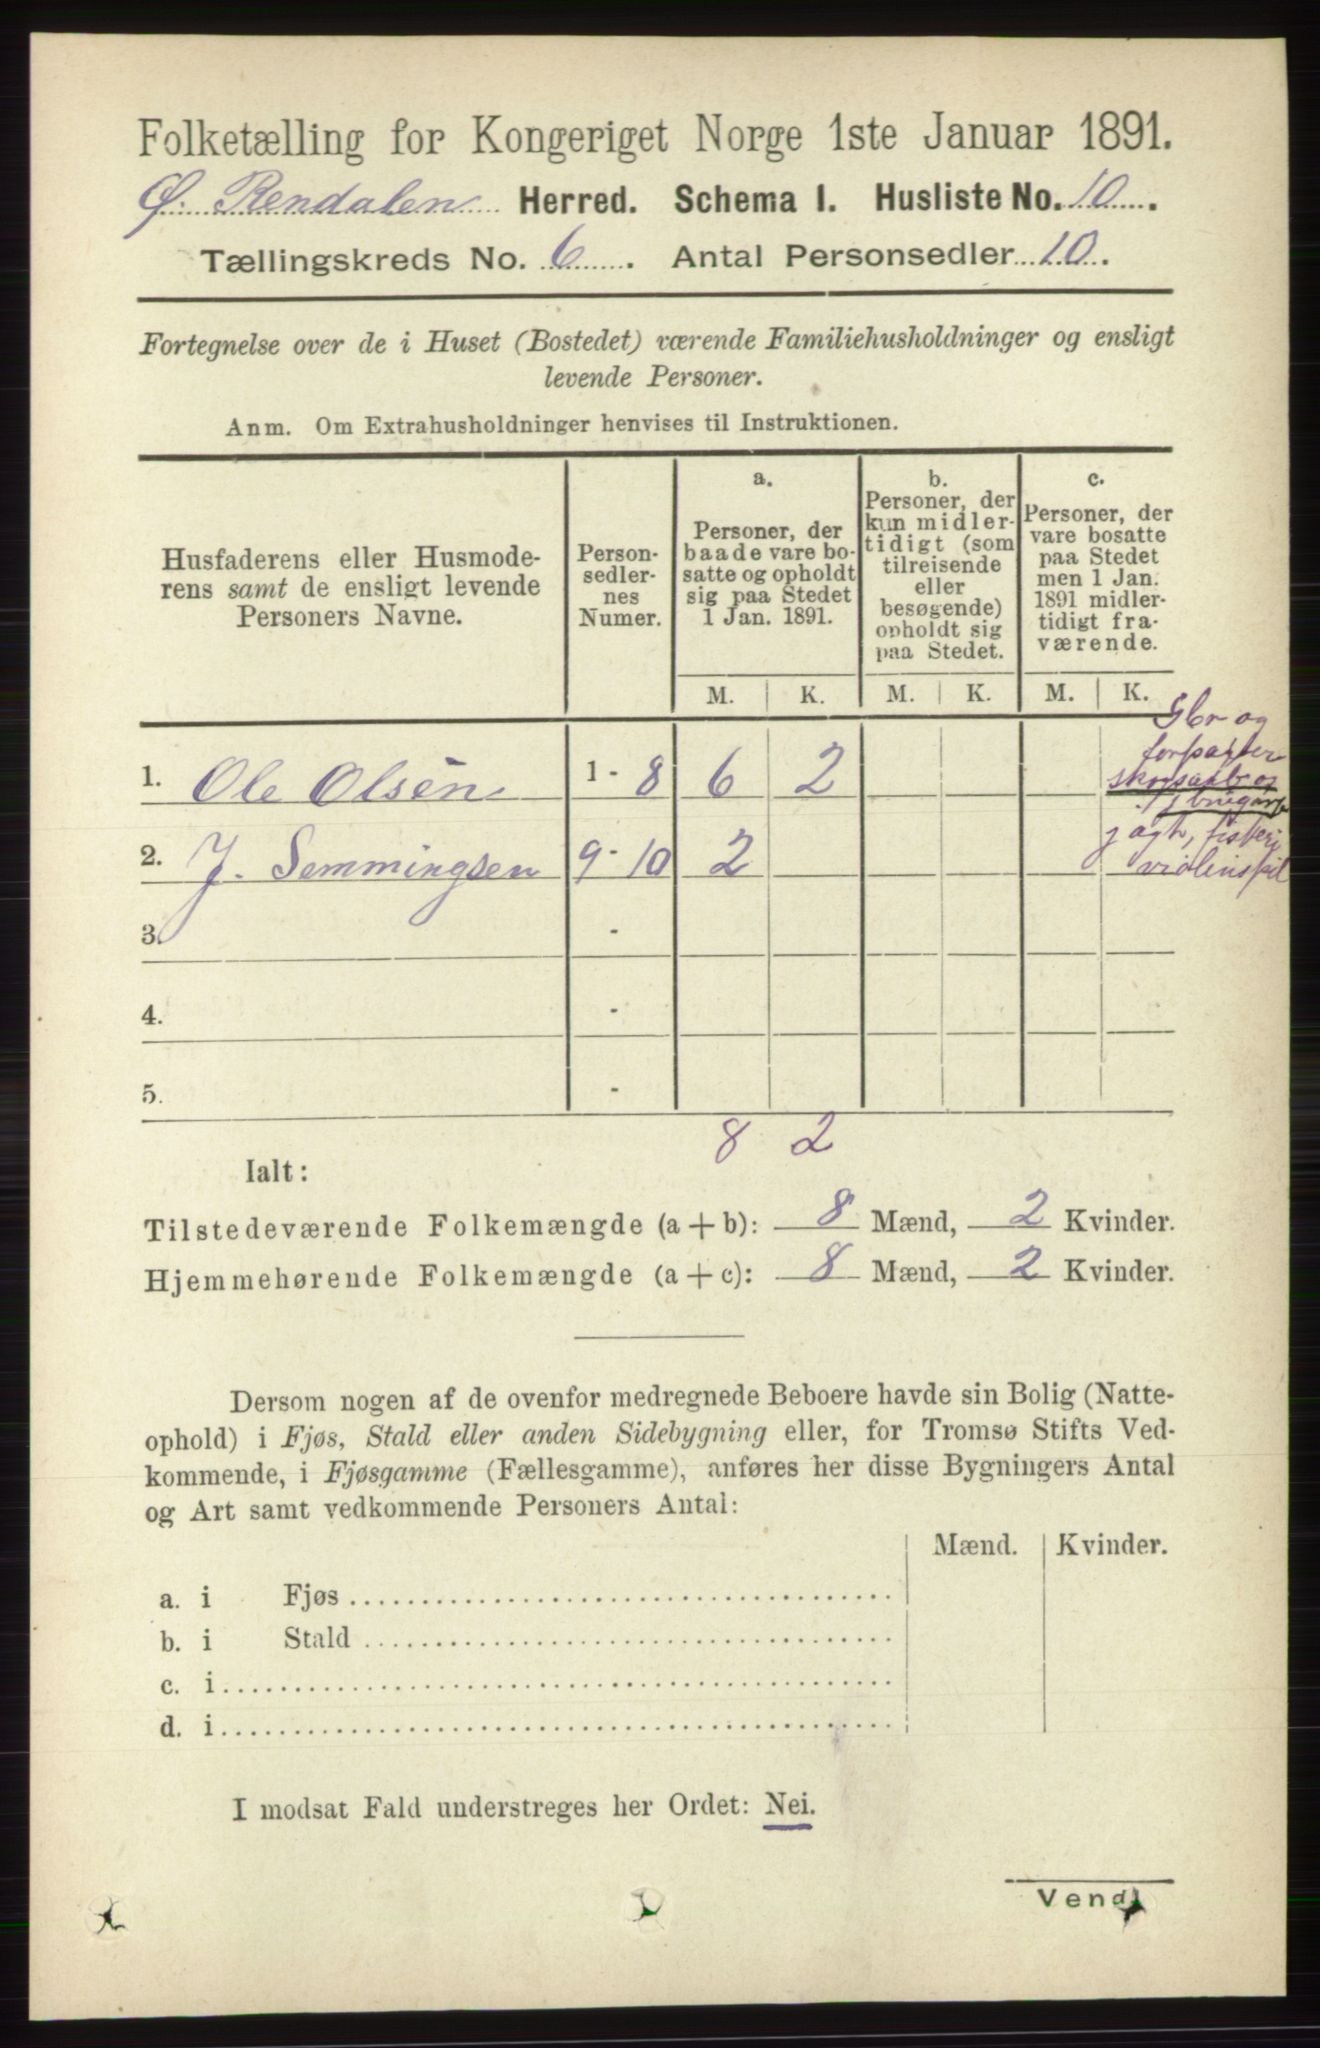 Folketælling for Kongeriget Norge 1ste Januar 1891.
Ø. Rendalen Herred. Schema I. Husliste No. 10.
Tællingskreds No. 6. Antal Personsedler 10.
Fortegnelse over de i Huset (Bostedet) værende Familiehusholdninger og ensligt
levende Personer.
Anm. Om Extrahusholdninger henvises til Instruktionen.
Husfaderens eller Husmode-
rens samt de ensligt levende
Personers Navne.
Person-
sedler-
nes
Numer.
a.
Personer, der
baade vare bo-
satte og opholdt
sig paa Stedet
1 Jan. 1891.
b.
Personer, der
kun midler-
tidigt (som
tilreisende
eller
besøgende)
opholdt sig
paa Stedet.
c.
Personer, der
vare bosatte
paa Stedet
men 1 Jan.
1891 midler-
tidigt fra-
værende.
M. K. M. K. M. K.
Gbr og
forpagter
skogsarb og
jagt, fiskeri
violinspil
1. Ole Olsen 1 - 8 6 2
2. J. Semmingsen 9 - 10 2
3. -
4. -
5. -
8 2
Ialt:
Tilstedeværende Folkemængde (a + b): 8 Mænd, 2 Kvinder.
Hjemmehørende Folkemængde (a + c): 8 Mænd, 2 Kvinder.
Dersom nogen af de ovenfor medregnede Beboere havde sin Bolig (Natte-
ophold) i Fjøs, Stald eller anden Sidebygning eller, for Tromsø Stifts Ved-
kommende, i Fjøsgamme (Fællesgamme), anføres her disse Bygningers Antal
og Art samt vedkommende Personers Antal:
Mænd. Kvinder.
a. i Fjøs
b. i Stald
c. i
d. i
I modsat Fald understreges her Ordet: Nei.
Vend!